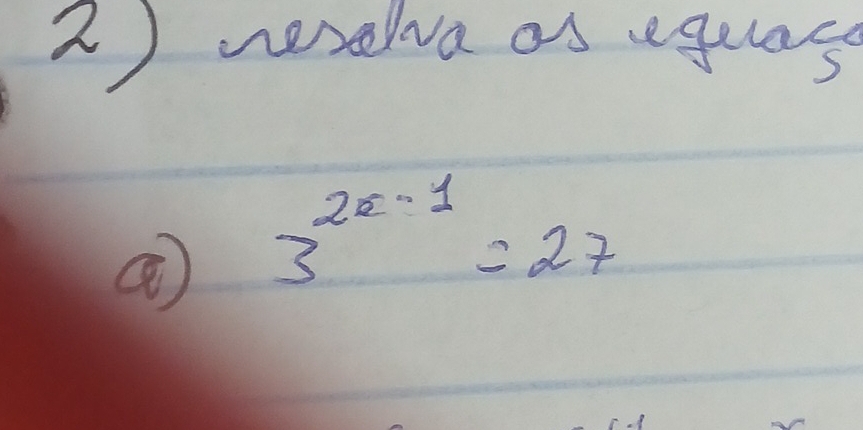 2) resolva as equaçõ
a) 3^{2x-1} = 27